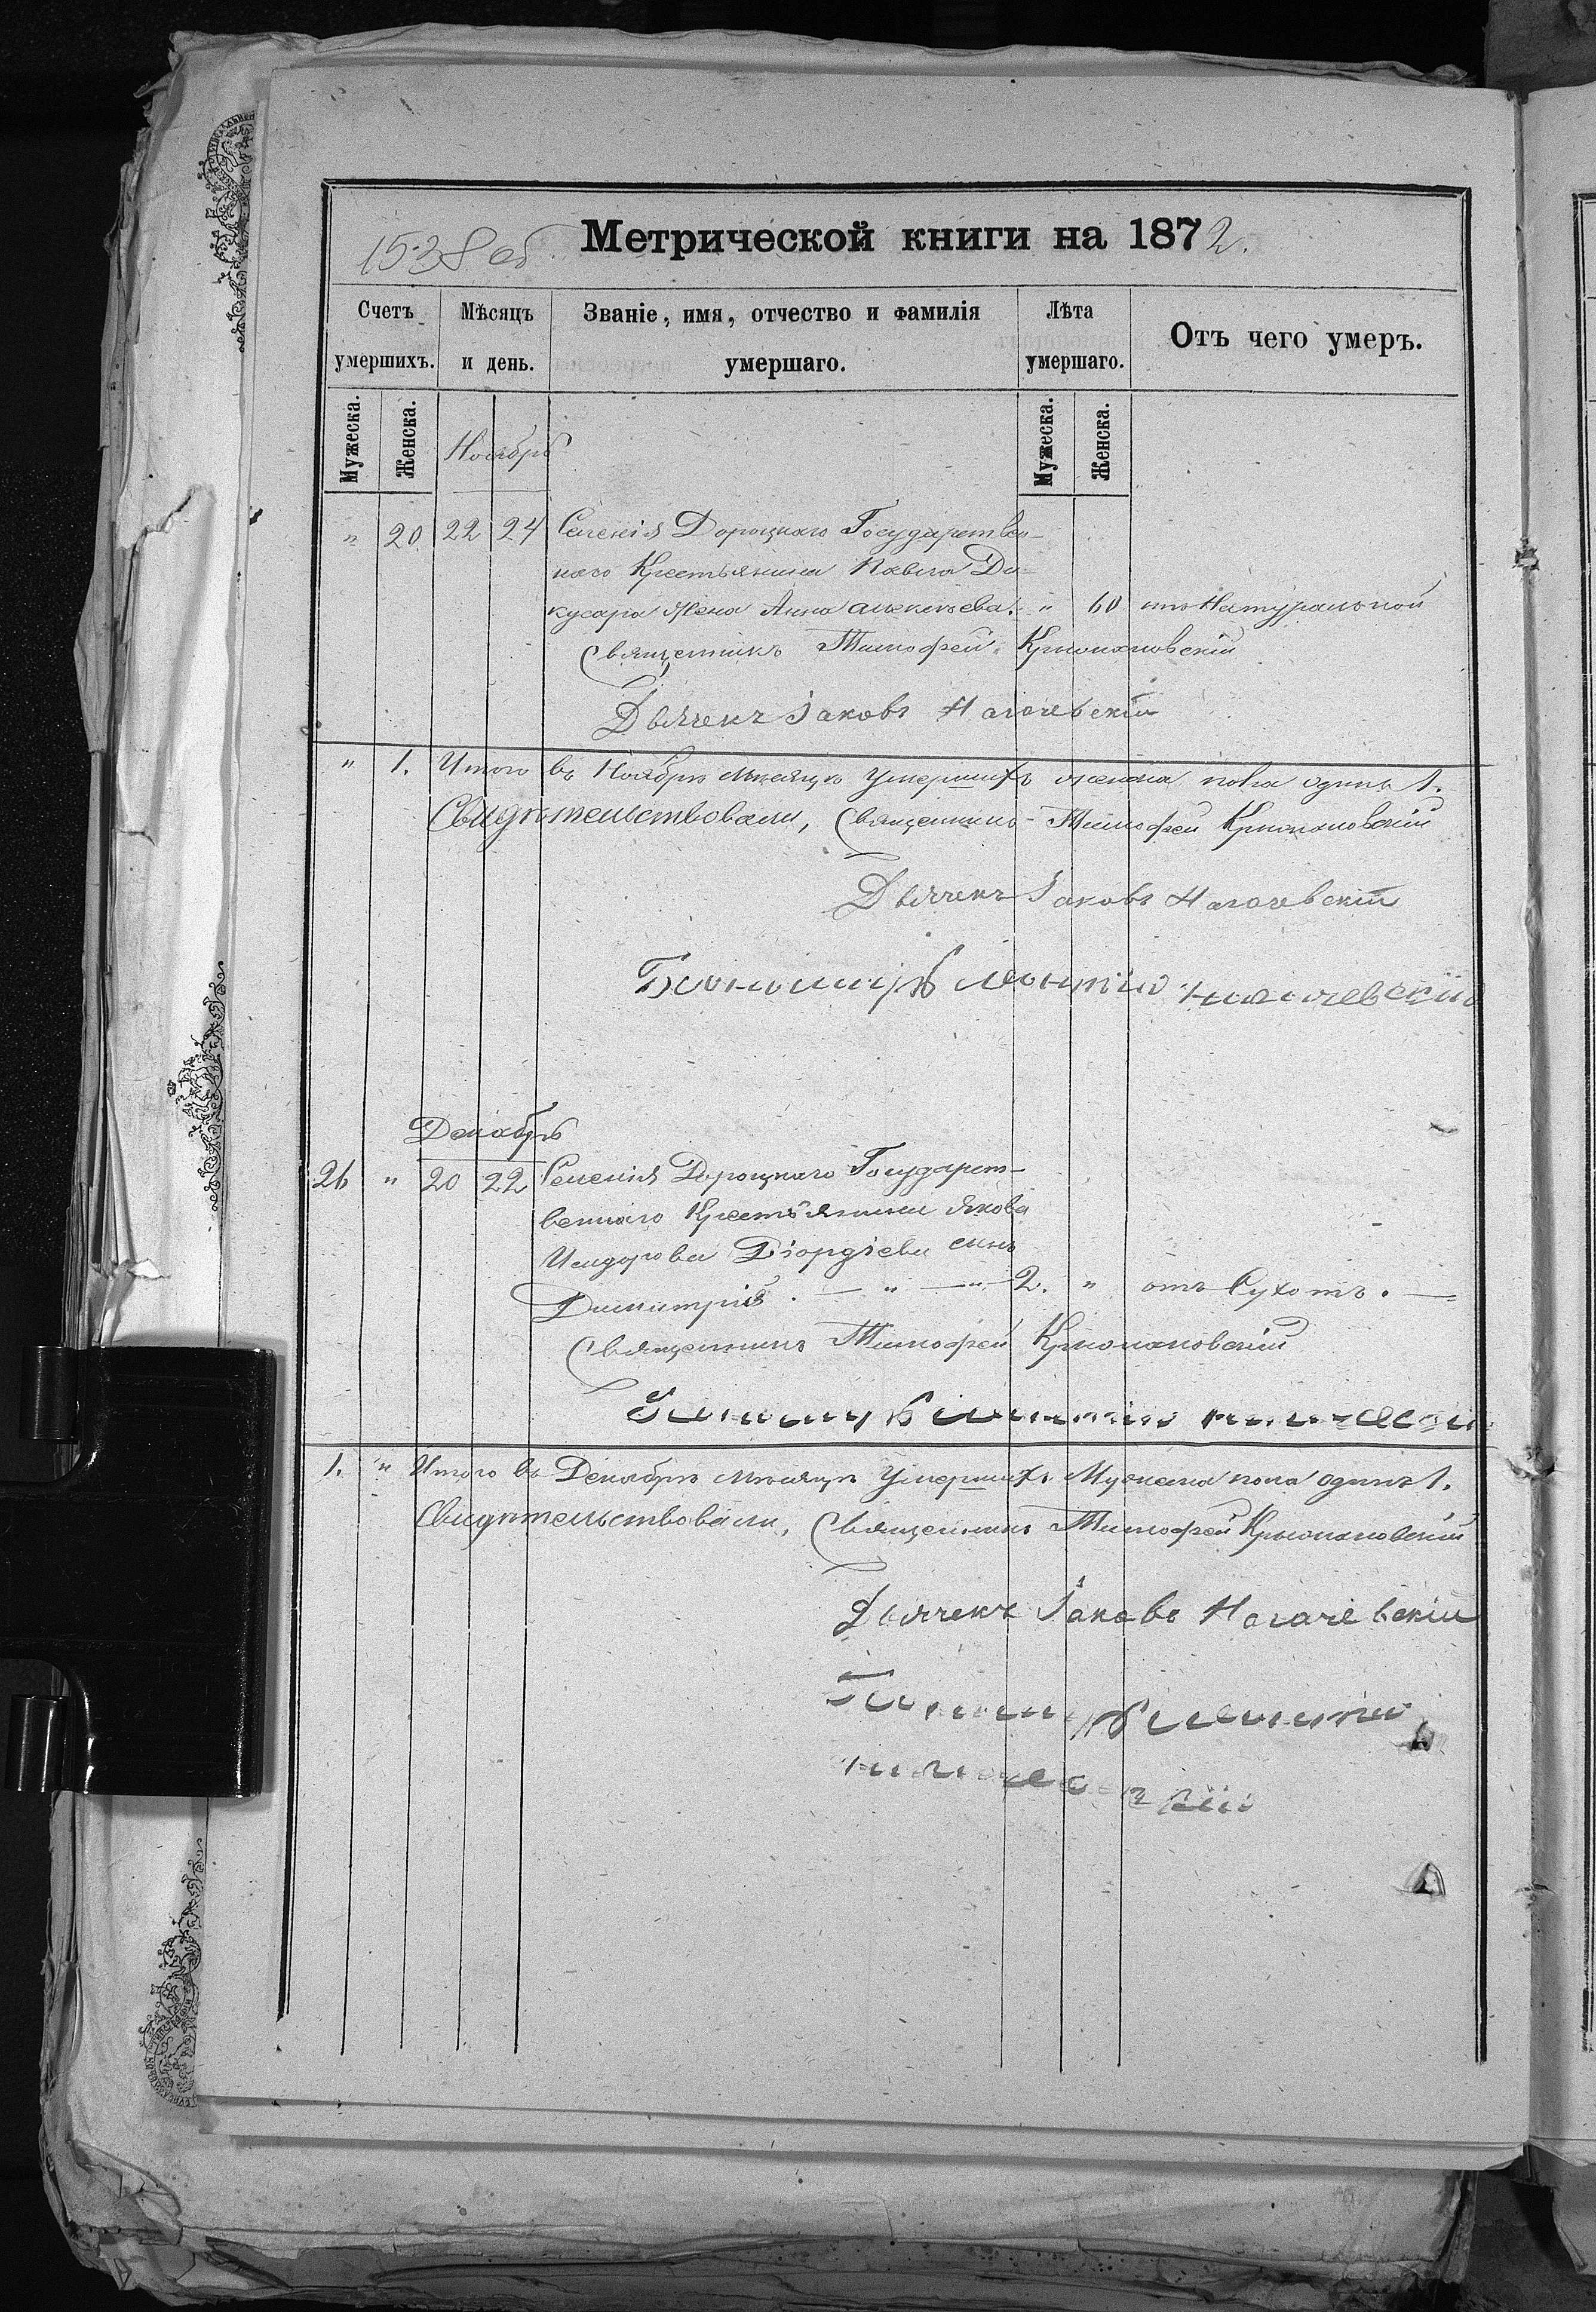 Метрической книги на 1872.
1538 об.
Счетъ умершихъ.
Мѣсяцъ и день.
Званіе, имя, отчество и фамилія умершаго.
Лѣта умершаго.
Отъ чего умеръ.
Мужеска.
Женска.
Ноябрь
Мужеска.
Женска.
" 20 22 24 Селенія Дороцкаго Государствен-
наго Крестьянина Павла До-
кусара жена Анна Алексѣева. " 60 отъ Натуральной
Священникъ Тимофей Крюкановскій
Дьячекъ Іаковъ Нагачевскій
" 1. Итого въ Ноябрѣ мѣсяцѣ Умершихъ женска пола одинъ 1.
Свидѣтельствовали, Священникъ Тимофей Крюкановскій
Дьячекъ Іаковъ Нагачевскій
Пономарь Леонтій Нагачевскій
Декабрь
26 " 20 22 Селенія Дороцкаго Государст-
веннаго Крестьянина Якова
Исидорова Діордіева сынъ
Димитрій. — " — " — 2. " отъ Сухотъ. —
Священникъ Тимофей Крюкановскій
Пономарь Леонтій Нагачевскій
1. " Итого въ Декабрѣ мѣсяцѣ Умершихъ Мужеска пола одинъ 1.
Свидѣтельствовали, Священникъ Тимофей Крюкановскій
Дьячекъ Іаковъ Нагачевскій
Пономарь Леонтій
Нагачевскій